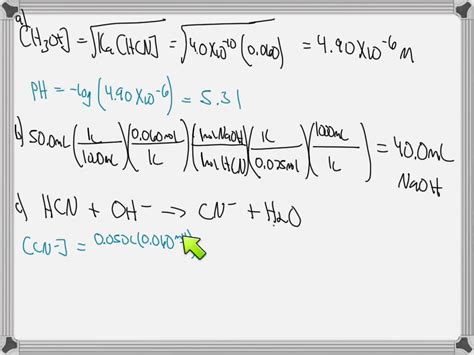 a)
[H3O+] = √Ka[HCN] = √4.0X10^-10(0.060) = 4.90X10^-6 M
PH = -log(4.90X10^-6) = 5.31
b) 50.0mL (1L/1000mL)(0.060mol/1L)(1molNaOH/1molHCN)(1L/0.075mol)(1000mL/1L) = 40.0mL NaOH
c) HCN + OH- → CN- + H2O
[CN-] = 0.050L(0.060